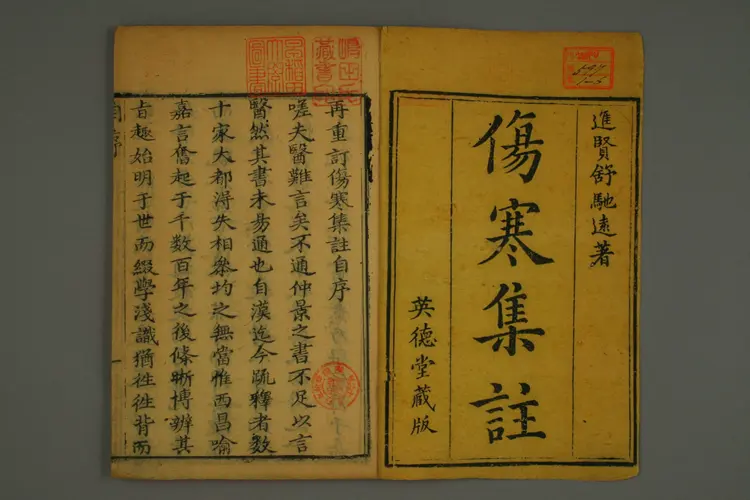 進賢舒馳遠著
傷寒集註
英德堂藏版
再重訂傷寒集註自序
嗟夫醫難言矣不通仲景之書不足以言
醫然其書未易通也自漢迄今疏釋者数
十家大都得失相叅均之無當惟西昌喻
嘉言奮起于千数百年之後條晣博辨其
旨趣始明于世而綴學淺識猶徃徃背而
自序